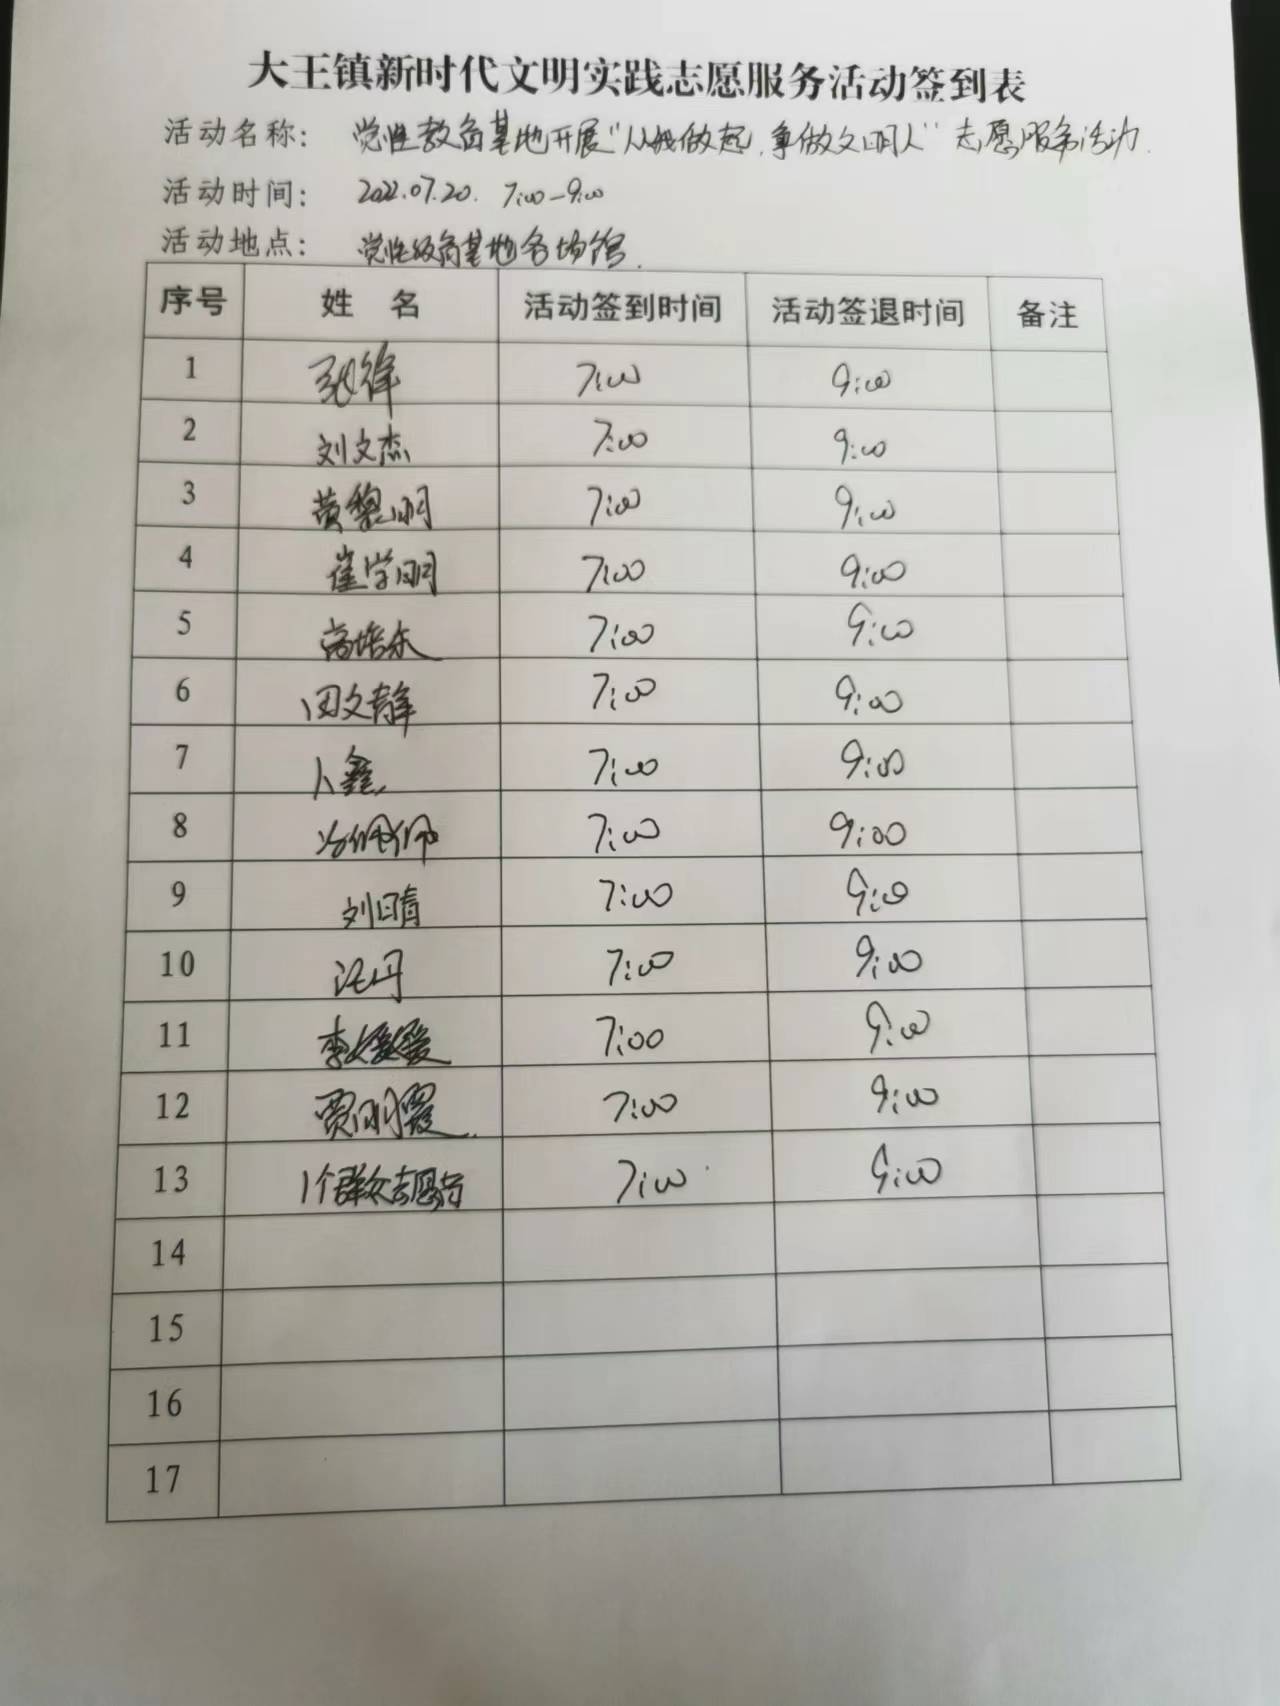 大王镇新时代文明实践志愿服务活动签到表
活动名称： 党性教育基地开展“从我做起，争做文明人”志愿服务活动.
活动时间： 2022.07.20. 7:00-9:00
活动地点： 党性教育基地各场馆.
序号 姓 名 活动签到时间 活动签退时间 备注
1 7:00 9:00
2 刘文杰 7:00 9:00
3 黄黎明 7:00 9:00
4 崔学明 7:00 9:00
5 高培东 7:00 9:00
6 田文静 7:00 9:00
7 卜鑫 7:00 9:00
8 7:00 9:00
9 刘晴 7:00 9:00
10 7:00 9:00
11 李媛媛 7:00 9:00
12 贾明霞 7:00 9:00
13 1个群众志愿者 7:00 9:00
14
15
16
17